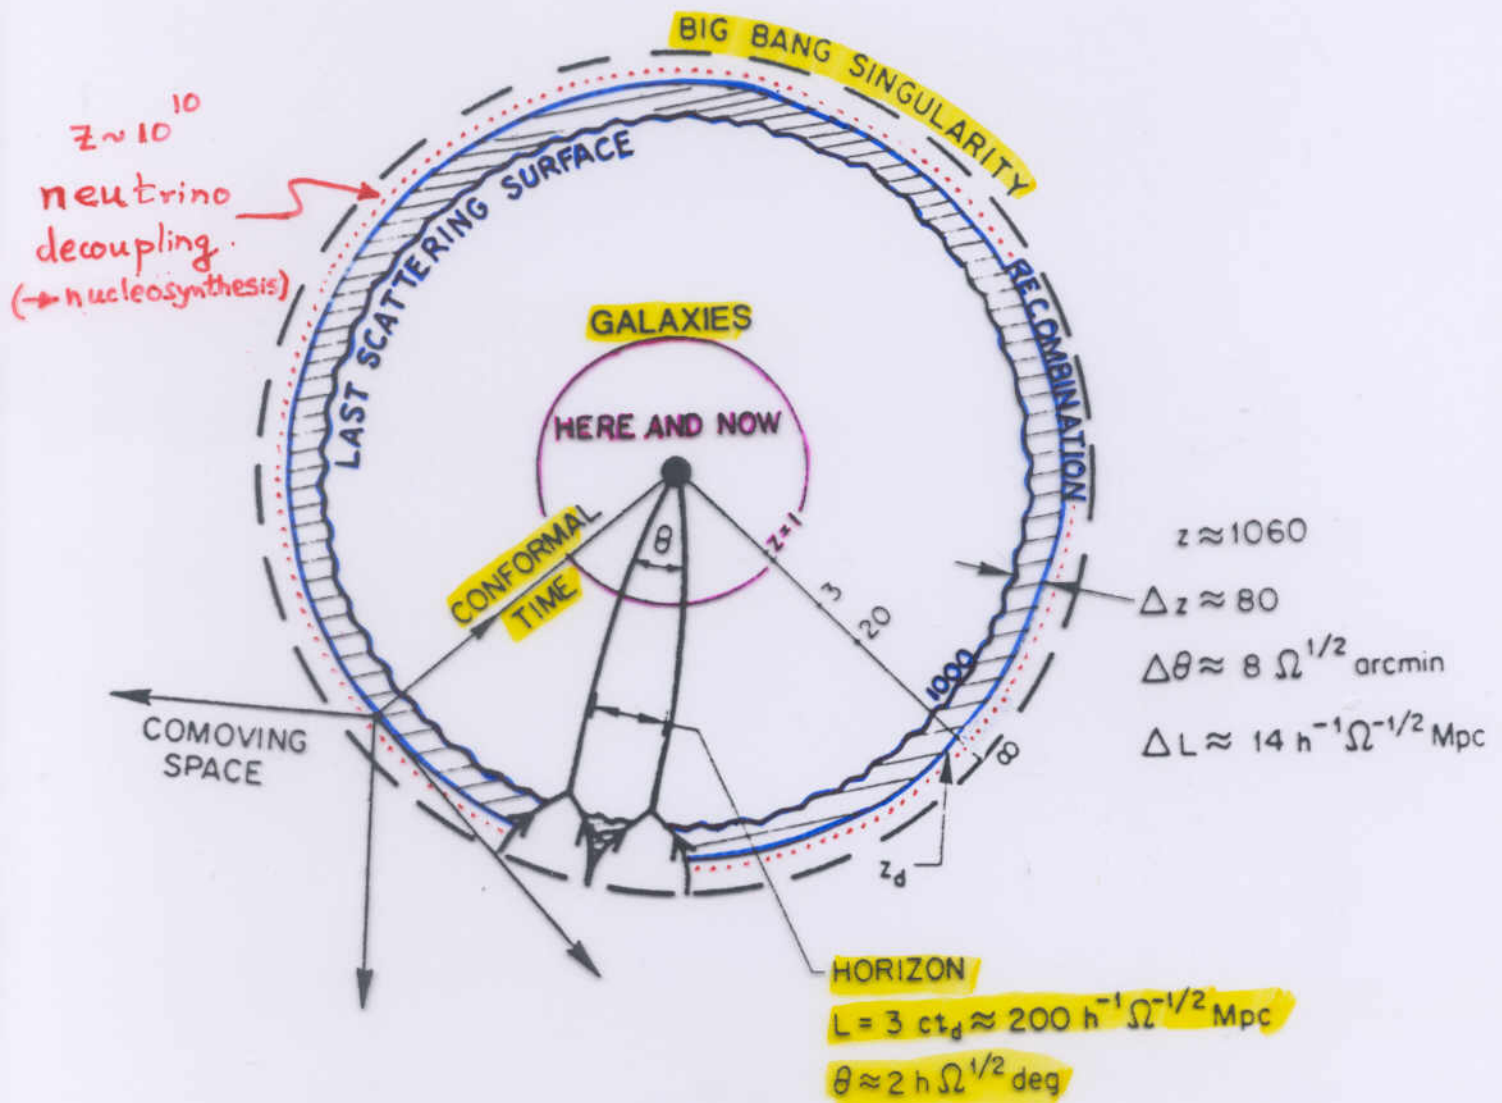 BIG BANG SINGULARITY
z ~ 10^10
neutrino
decoupling.
(→ nucleosynthesis)
LAST SCATTERING SURFACE
RECOMBINATION
GALAXIES
HERE AND NOW
θ
CONFORMAL
TIME
z=1
3
20
1000
∞
z_d
COMOVING
SPACE
z ≈ 1060
Δz ≈ 80
Δθ ≈ 8 Ω^1/2 arcmin
ΔL ≈ 14 h^-1 Ω^-1/2 Mpc
HORIZON
L = 3 ct_d ≈ 200 h^-1 Ω^-1/2 Mpc
θ ≈ 2 h Ω^1/2 deg